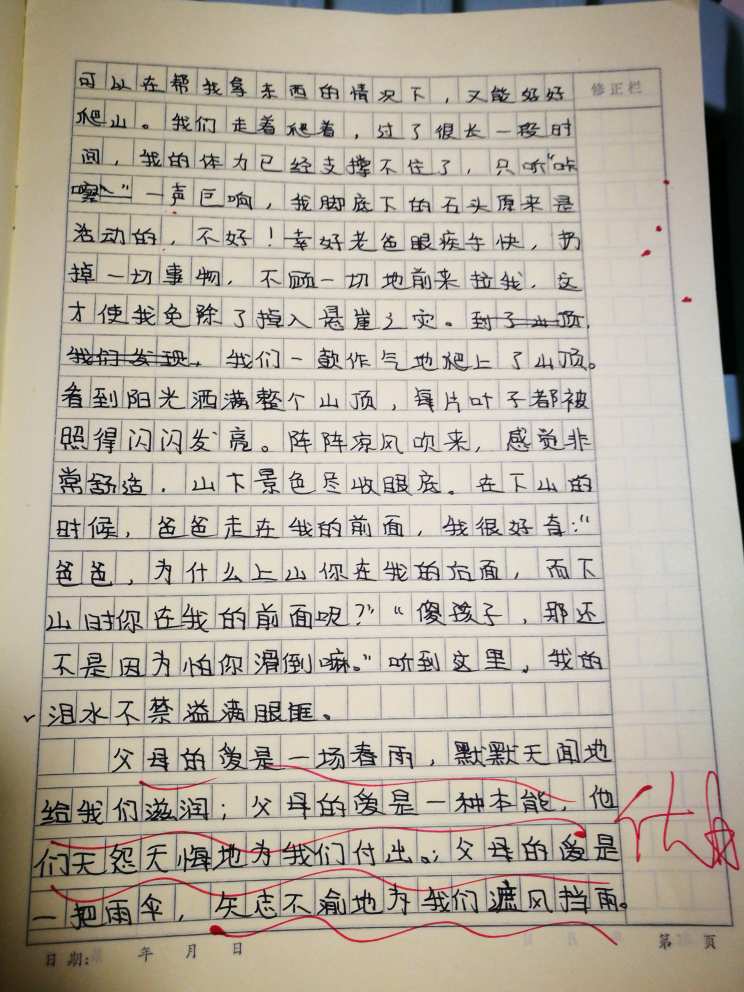 可以在帮我拿东西的情况下，又能好好
修正栏
爬山。我们走着爬着，过了很长一段时
间，我的体力已经支撑不住了，只听"咔
嚓"一声巨响，我脚底下的石头原来是
活动的，不好！幸好老爸眼疾手快，扔
掉一切事物，不顾一切地前来拉我，文
才使我免除了掉入悬崖之灾。到了山顶，
我们发现，我们一鼓作气地爬上了山顶。
看到阳光洒满整个山顶，每片叶子都被
照得闪闪发亮。阵阵凉风吹来，感觉非
常舒适，山下景色尽收眼底。在下山的
时候，爸爸走在我的前面，我很好奇："
爸爸，为什么上山你在我的后面，而下
山时你在我的前面呢？""傻孩子，那还
不是因为怕你滑倒嘛。"听到这里，我的
泪水不禁溢满眼眶。
父母的爱是一场春雨，默默无闻地
给我们滋润；父母的爱是一种本能，他
们无怨无悔地为我们付出。；父母的爱是
一把雨伞，矢志不渝地为我们遮风挡雨。
日期： 年 月 日
第 页